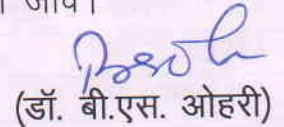 जावे।
(डॉ. बी.एस. ओहरी)